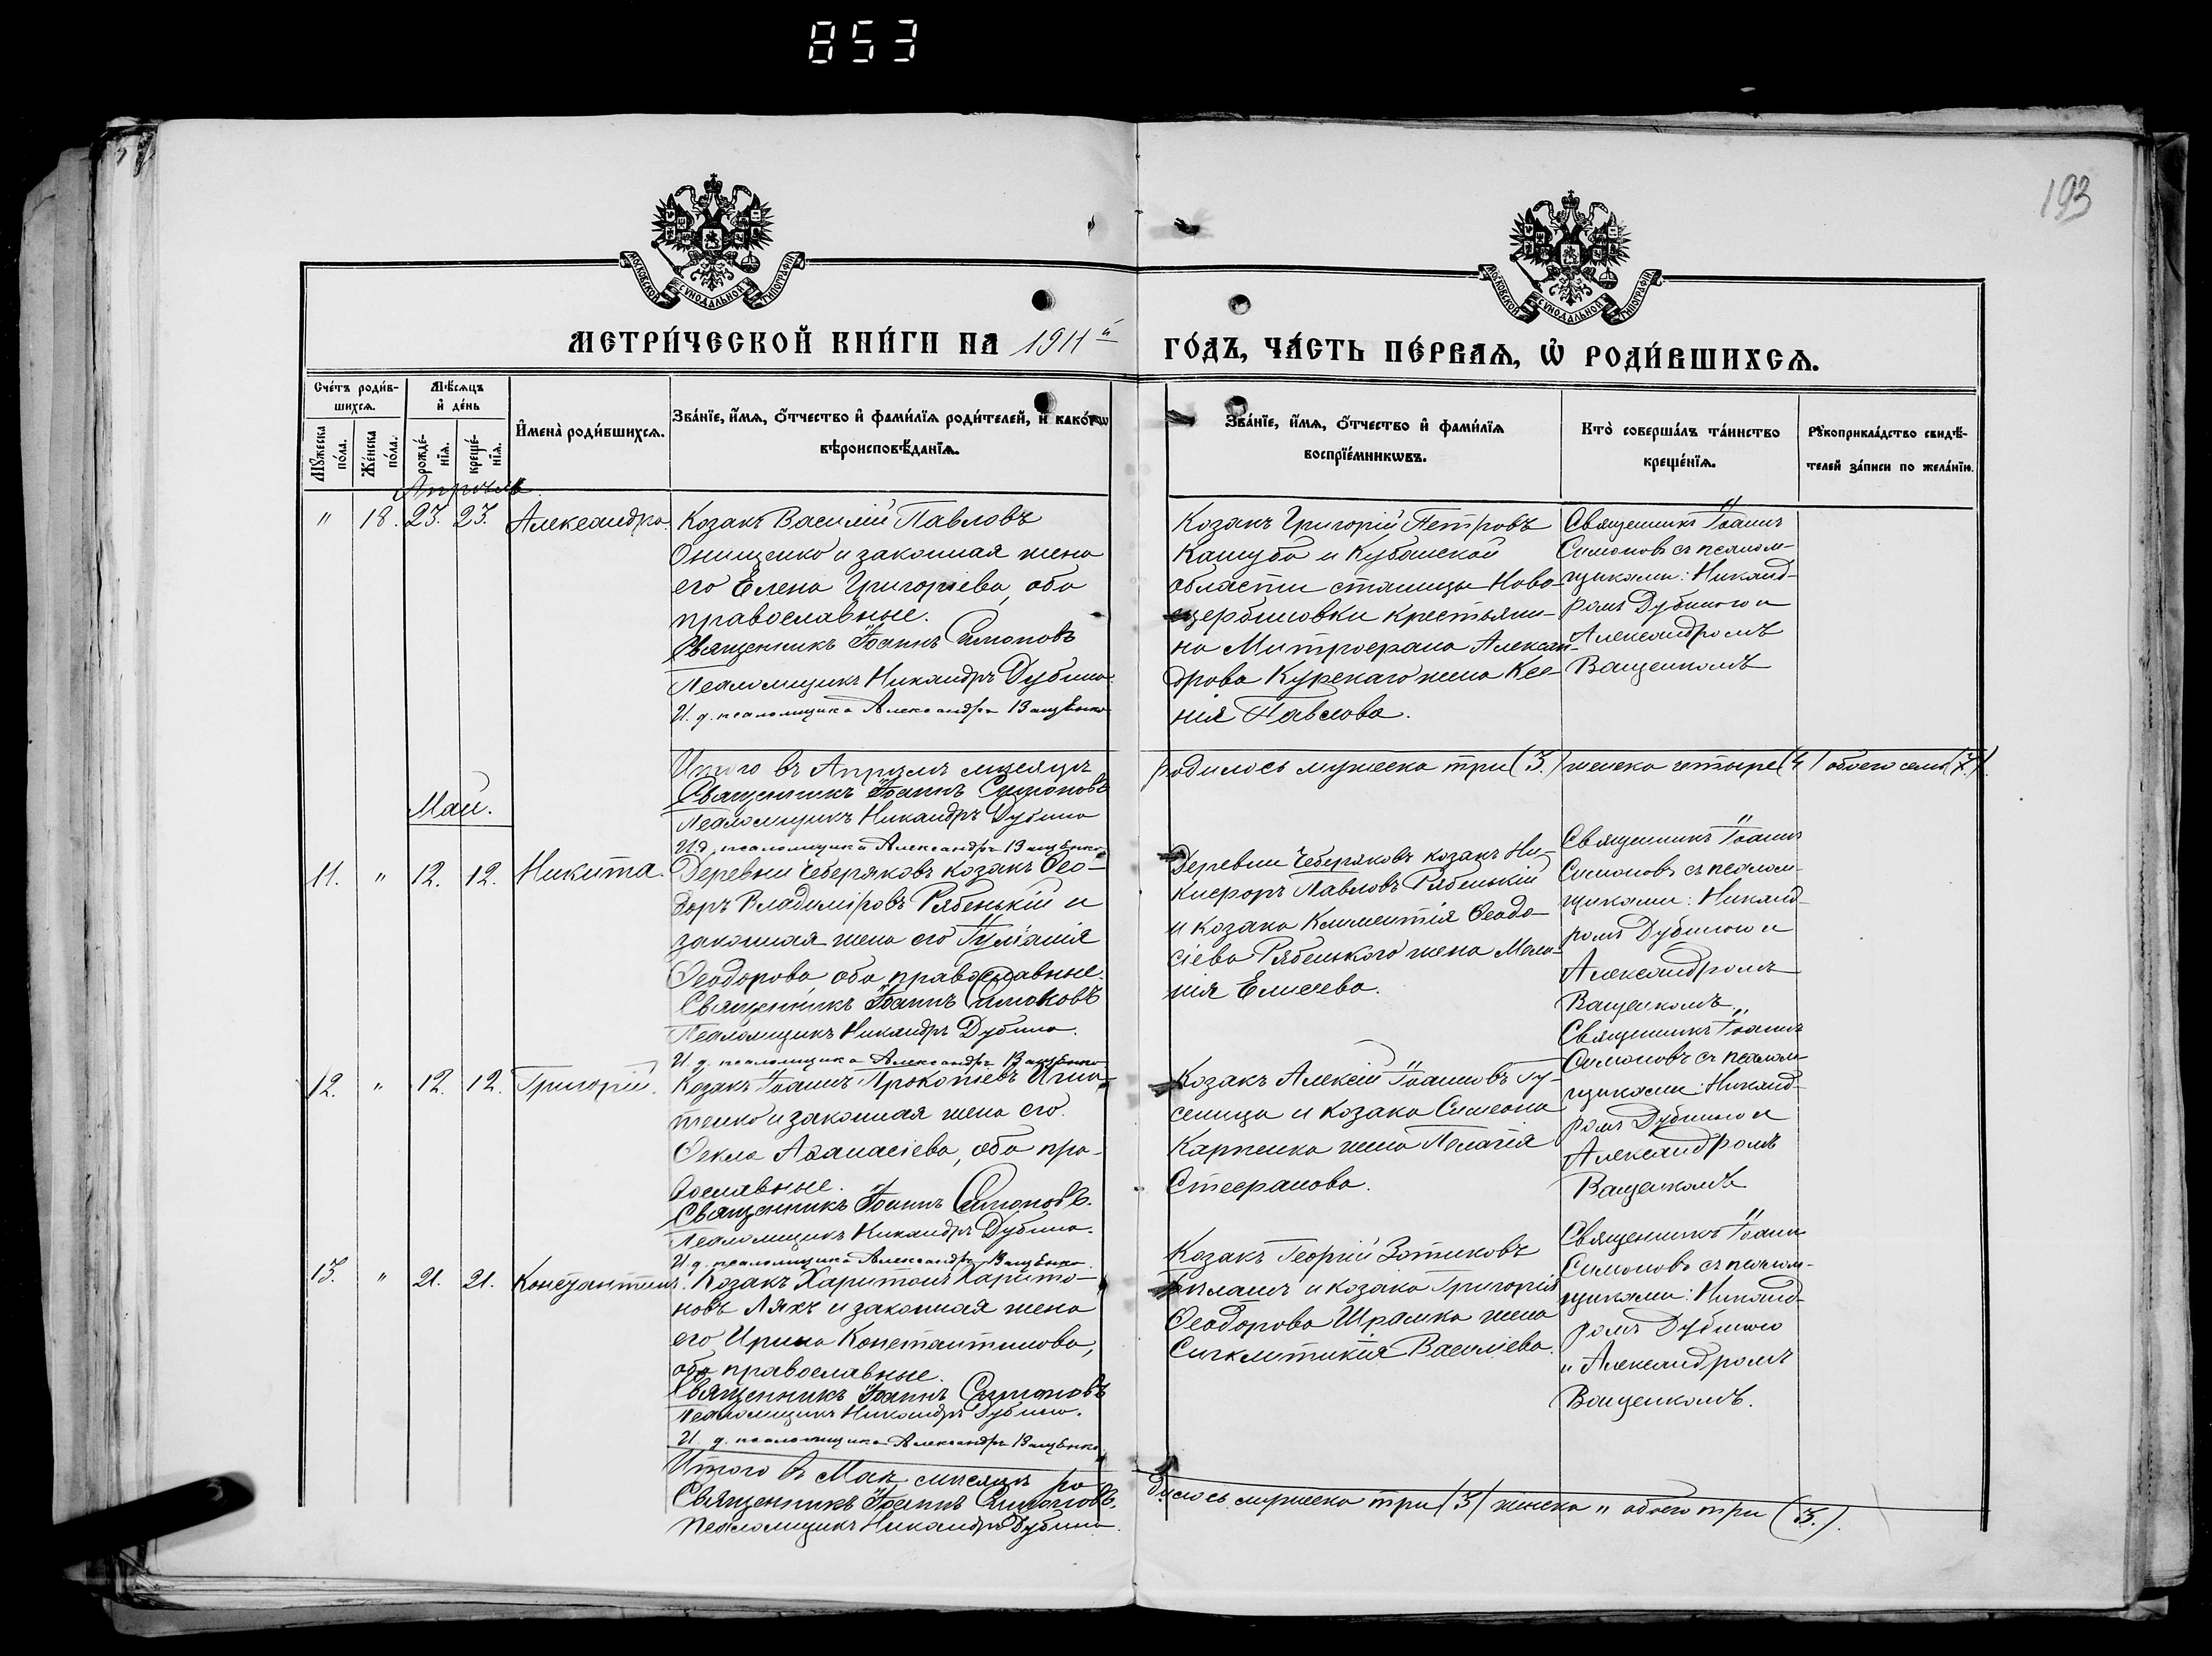 853
193
МОСКОВСКОЙ СѴНОДАЛЬНОЙ ТИПОГРАФІИ
МОСКОВСКОЙ СѴНОДАЛЬНОЙ ТИПОГРАФІИ
МЕТРИ́ЧЕСКОЙ КНИ́ГИ НА 1911й
ГО́ДЪ, ЧА́СТЬ ПЕ́РВАѦ, Ѡ҆ РОДИ́ВШИХСѦ.
Сче́тъ роди́в-
шихсѧ.
Мѣ́сѧцъ
и҆ де́нь
Мꙋ́жеска
по́ла.
Же́нска
по́ла.
рожде́-
нїѧ.
креще́-
нїѧ.
И҆мена̀ роди́вшихсѧ.
Зва́нїе, и҆́мѧ, ѻ҆́тчество и҆ фами́лїѧ роди́телей, и҆ како́гѡ
вѣроисповѣ́данїѧ.
Зва́нїе, и҆́мѧ, ѻ҆́тчество и҆ фами́лїѧ
воспрїе́мникѡвъ.
Кто̀ соверша́лъ та́инство
креще́нїѧ.
Рꙋкоприкла́дство свидѣ́-
телей за́писи по жела́нїю.
Апрѣль
" 18. 23. 23. Александра.
Козакъ Василій Павловъ
Онищенко и законная жена
его Елена Григоріева, оба
православные.
Священникъ Іоаннъ Симоновъ
Псаломщикъ Никандръ Дубина.
И. д. псаломщика Александръ Ващенко
Козакъ Григорій Петровъ
Кашуба и Кубанской
области станицы Ново-
щербиновки крестьяни-
на Митрофана Алексан-
дрова Курскаго жена Ксе-
нія Павлова.
Священникъ Іоаннъ
Симоновъ съ псалом-
щиками: Никанд-
ромъ Дубиною и
Александромъ
Ващенкомъ
Итого въ Апрѣлѣ мѣсяцѣ
родилось мужеска три (3.) женска четыре (4) обоего семь (7.).
Священникъ Іоаннъ Симоновъ
Псаломщикъ Никандръ Дубина
И.д. псаломщика Александръ Ващенко
Май.
11. " 12. 12. Никита.
Деревни Чеберяковъ козакъ Ѳео-
доръ Владиміровъ Рябенькій и
законная жена его Іуліанія
Ѳеодорова, оба православные.
Священникъ Іоаннъ Симоновъ
Псаломщикъ Никандръ Дубина.
И. д. псаломщика Александръ Ващенко
Деревни Чеберяковъ козакъ Ни-
кифоръ Павловъ Рябенькій
и козака Климентія Ѳеодо-
сіева Рябенького жена Мела-
нія Елисеева.
Священникъ Іоаннъ
Симоновъ съ псалом-
щиками: Никанд-
ромъ Дубиною и
Александромъ
Ващенкомъ
12. " 12. 12. Григорій.
Козакъ Іоаннъ Прокопіевъ Игна-
тенко и законная жена его
Ѳекла Аѳанасіева, оба пра-
вославные.
Священникъ Іоаннъ Симоновъ.
Псаломщикъ Никандръ Дубина.
И. д. псаломщика Александръ Ващенко
Козакъ Алексій Іоанновъ Гу-
сеница и козака Симеона
Карпенка жена Пелагія
Стефанова.
Священникъ Іоаннъ
Симоновъ съ псалом-
щиками: Никанд-
ромъ Дубиною и
Александромъ
Ващенкомъ
13. " 21. 21. Константинъ.
Козакъ Харитонъ Харито-
новъ Ляхъ и законная жена
его Ирина Константинова,
оба православные.
Священникъ Іоаннъ Симоновъ
Псаломщикъ Никандръ Дубина.
И. д. псаломщика Александръ Ващенко
Козакъ Георгій Зотиковъ
и козака Григорія
Ѳеодорова Шрамка жена
Сигклитикія Василіева.
Священникъ Іоаннъ
Симоновъ съ псалом-
щиками: Никанд-
ромъ Дубиною
и Александромъ
Ващенкомъ.
Итого въ Маѣ мѣсяцѣ ро-
дилось мужеска три (3) женска " обоего три (3.).
Священникъ Іоаннъ Симоновъ.
Псаломщикъ Никандръ Дубина.